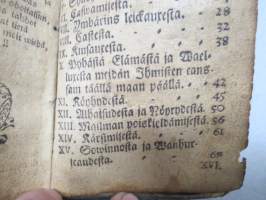 VI. Caswamisesta. 28
VII. Ymbärins leickauxesta.
32
VIII. Casteesta. 38
IX. Kiusauxesta.
X. Pyhästä Elämästä ja Wael-
luxesta meidän Ihmisten cans-
sam täällä maan päällä. 42
XI. Köyhydestä. 45
XII. Alhaisudesta ja Nöyrydestä. 50
XIII. Mailman poiskieldämisestä. 56
XIV. Kärsimisestä. 61
XV. Sowinnosta ja Wanhur-
scaudesta. 68
XVI.